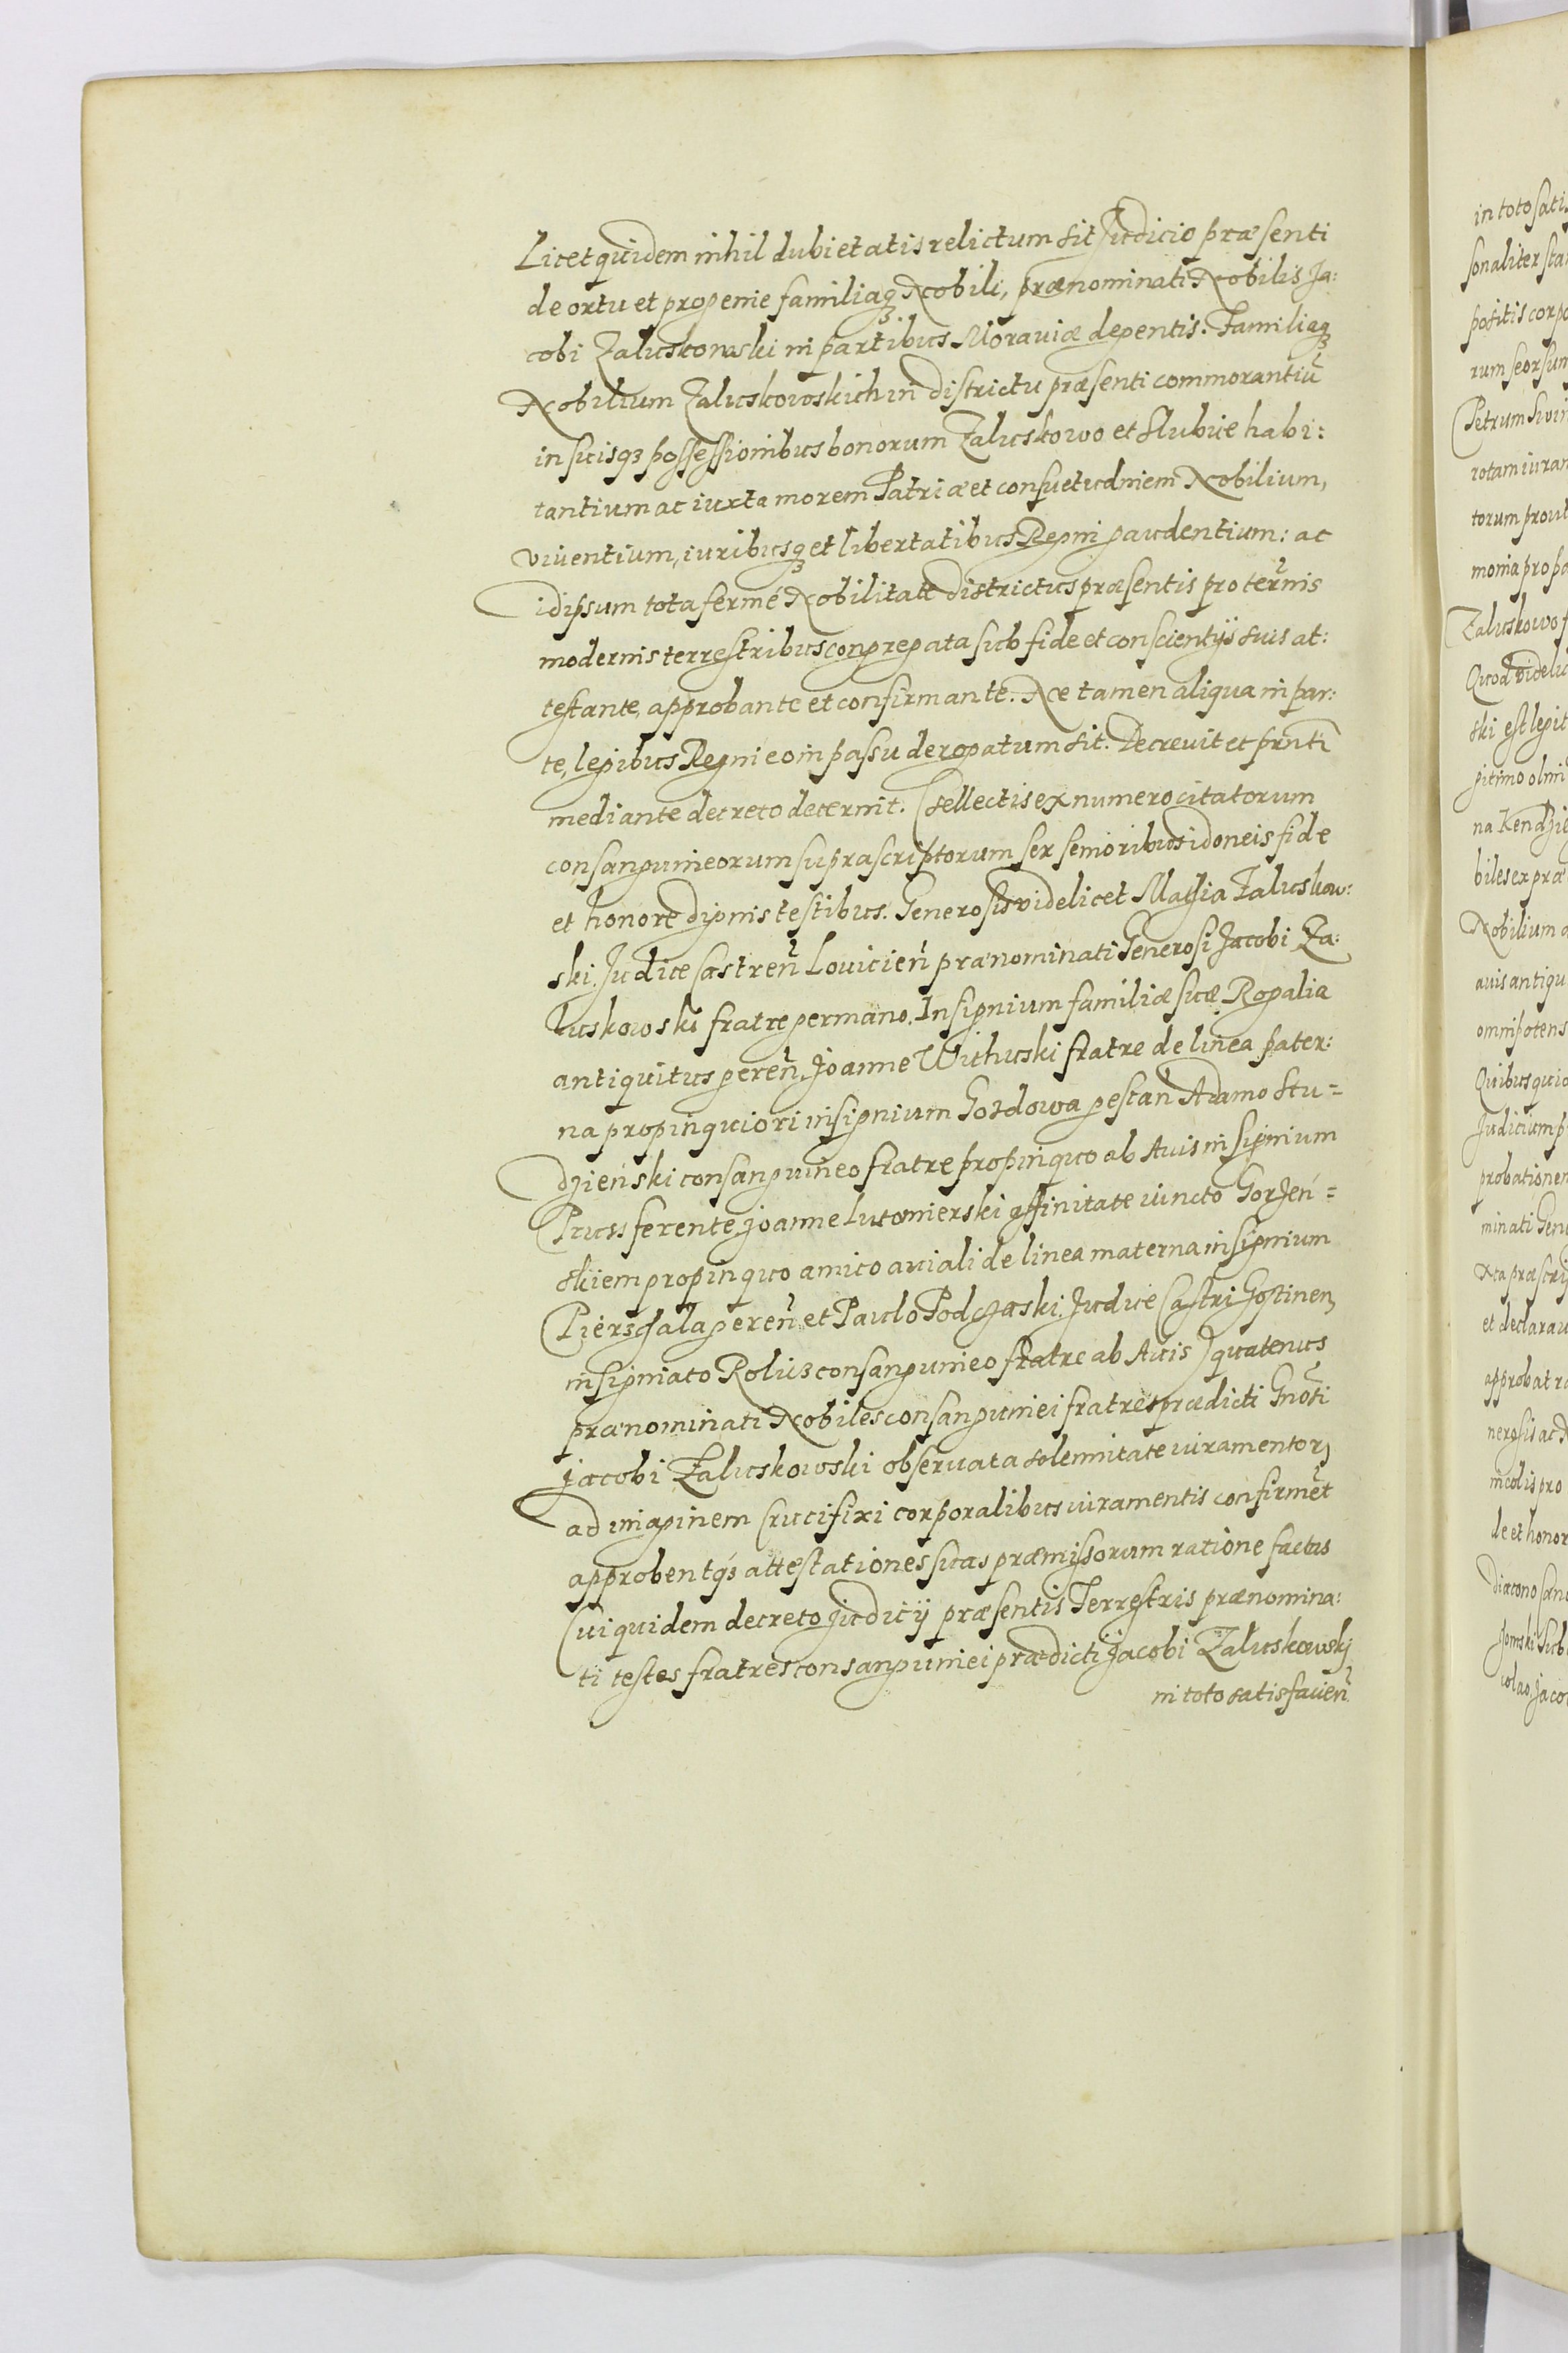 Licet quidem nihil dubietatis relictum sit Judicio præsenti
de ortu et progenie familiaqꝫ Nobili, prænominati Nobilis Ja:
cobi Zaluskowski in partibus Moraviæ degentis. Familiaqꝫ
Nobilium Zaluskowskich in districtu præsenti commorantiū
in suisqꝫ possessionibus bonorum Zaluskowo et Slubice habi:
tantium ac iuxta morem Patriæ et consuetudinem Nobilium,
viventium, iuribusqꝫ et libertatibus Regni gaudentium: ac
idipsum tota fermé Nobilitate districtus præsentis pro ter̃nis
modernis terrestribus congregata sub fide et conscientijs suis at:
testante, approbante et confirmante. Ne tamen aliqua in par:
te, legibus Regni eo in passu derogatum sit. Decrevit et prnti
mediante decreto decernit. (Sellectis ex numero citatorum
consanguineorum suprascriptorum sex senioribus idoneis fide
et honore dignis testibus. Generosis videlicet Mathia Zaluskow:
ski Judice Castren̄ Lovicien̄ prænominati Generosi Jacobi Za:
luskowski fratre germano. Insignium familiæ suæ Rogalia
antiquitus geren̄, Joanne Withuski fratre de linea pater:
na propinquiori insignium Gozdowa gestan Adamo Stu=
dzieński consanguineo fratre propinquo ab Avis insignium
Pruss ferente Joanne Lutomierski affinitate iuncto Gorzeń=
skiem propinquo amico aviali de linea materna insignium
Pierzchala geren̄ et Paulo Podczaski Judice Castri Gostinen,
insigniato Roliz consanguineo fratre ab Avis) quatenus
prænominati Nobiles consanguinei fratres prædicti Gnosi
Jacobi Zaluskowski observata solennitate iuramentor,
ad imaginem Crucifixi corporalibus iuramentis confirmēt
approbentqꝫ attestationes suas præmissorum ratione factas
Cui quidem decreto Judicij præsentis Terrestris prænomina:
ti testes fratres consanguinei prædicti Jacobi Zaluskowski
in toto satisfacien̄
in toto satis
sonaliter sta
positis corpo
rum seorsum
Petrum
rotam iuram
torum prout
monia pro pa
Zaluskowo f
Quod videlic
ski est legit
gitimo olim
na Kendzie
biles ex præ
Nobilium a
avis antiqu
omnipotens
Quibus quid
Judicium p
probationem
minati Gene
xta præscrip
et declarav
approbat r
nerosis ac N
incolis pro
de et honor
diacono
Sub
colao, Jaco